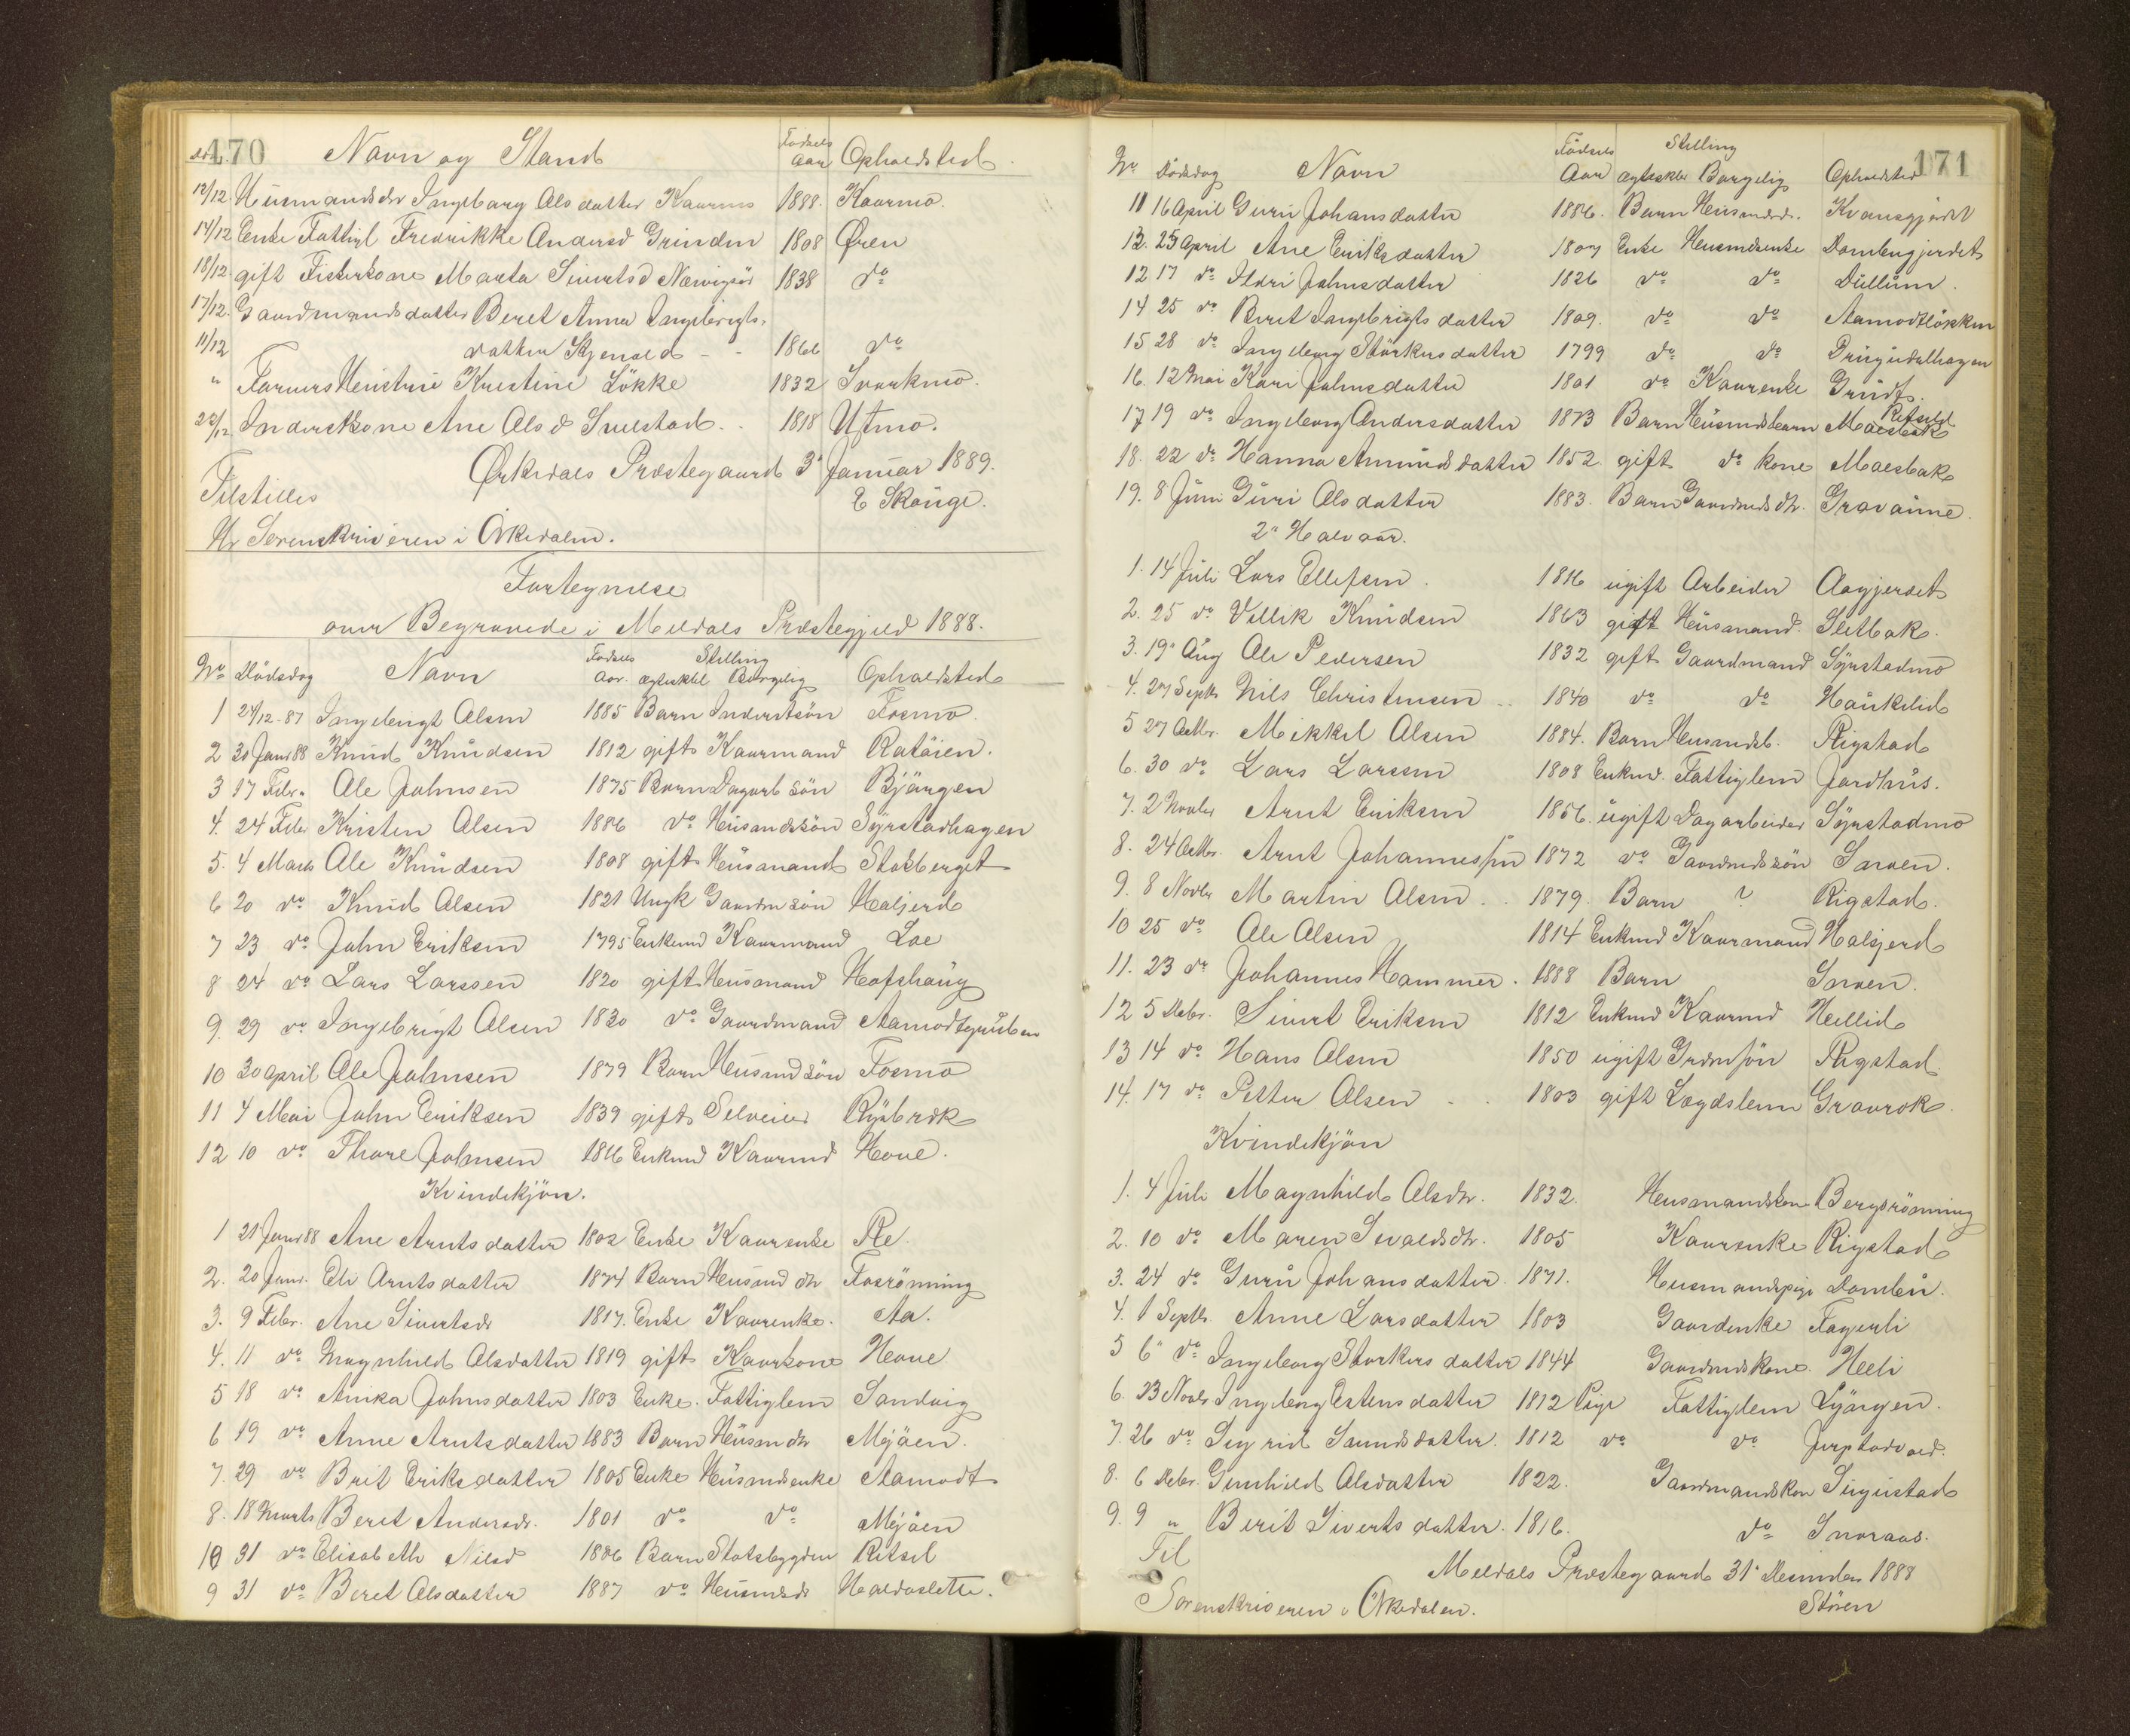 170
Navn og Stand Födsels Aar Opholdsted
12/12 Husmandsdr Ingeborg Olsdatter Kaurmo 1888. Kaurmo.
14/12 Enke Fattigl Fredrikke Andersd Grinden 1808 Øren
18/12 gift Fiskerkone Marta Sivertsd 1838 do
17/12 Gaardmandsdatter Beret Anna Ingebrigts-
11/12 datter Skjenald - - 1866 do
" Farvers Hustru Kristine Løkke 1832 Svorkmo.
22/12 Inderstkone Ane Olsd Snilstad . . 1818 Utmo.
Ørkedals Præstegaard 3' Januar 1889.
Tilstilles E Skauge.
Hr Sorenskriveren i Orkedalen.
Fortegnelse
over Begravede i Meldals Præstegjeld 1888.
No Dödsdag Navn Födsels Aar. Stilling ægteskbl Borgelig Opholdsted
1 24/12-87 Ingebrigt Olsen 1885 Barn Inderstsön Fosmo.
2 30 Janr 88 Knud Knudsen 1812 gift Kaarmand Ratåien.
3 17 Febr. Ole Johnsen 1875 Barn Dagarb sön Bjørgen
4. 24 Febr Kristen Olsen 1886 do Husmandssön Syrstadhagen
5. 4 Marts Ole Knudsen 1808 gift Husmand Stokberget
6 20 do Knud Olsen 1821 Ungk Gaardm sön Halsjerd
7 23 do John Eriksen 1795 Enkemd Kaarmand Loe
8 24 do Lars Larssen 1820 gift Husmand Hofshaug
9. 29 do Ingebrigt Olsen 1830 do Gaardmand Aamodtgruben
10 30 april Ole Johnsen 1879 Barn Husmd sön Fosmo
11 4 Mai John Eriksen 1839 gift Selveier Rybrok
12 10 do Thore Johnsen 1816 Enkemd Kaarmd Hove.
Kvindekjön.
1 21 Janr 88 Ane Arntsdatter 1802 Enke Kaarenke Re.
2. 20 Janr. Eli Arntsdatter 1874 Barn Husmd dtr Fosrönning
3. 9 Febr. Ane Sivertsdr 1817. Enke Kaarenke. Aa.
4. 11 do Magnhild Olsdatter 1819 gift Kaarkone Hove
5 18 do Anika Johnsdatter 1803 Enke. Fattiglem Sandvig
6 19 do Anne Arntsdatter 1883 Barn Husm dtr Mjöen.
7. 29 do Brit Eriksdatter 1805 Enke Husmdsenke Aamodt
8. 18 Marts Beret Andersdr. 1801 do do Mjöen
10 31 do Elisabeth Nilsd 1886 Barn Statsbygden Ritsel
9 31 do Beret Olsdatter 1887 do Husmdsdr Haldoslette.
171
No Dödsdag Navn Födsels Aar Stilling ægteskbl Borgelig Opholdsted
11 16 April Guru Johansdatter 1886. Barn Husmdsdr. Kvamsgjerdet
13. 25 April Ane Eriksdatter 1807 Enke Husmdsenke Dombugjerdet
12 17 do Ildri Johnsdatter 1826 do do Dullum.
14 25 do Beret Ingebrigtsdatter 1809. do do Aamodtløkken
15 28 do Ingeborg Störkersdatter 1799 do do Drugudalhagen
16. 12 Mai Kari Johnsdatter 1801 do Kaarenke Grudt.
17 19 do Ingeborg Andersdatter 1873 Barn Husmdsbarn Maelbak Ritseld
18. 22 do Hanna Amundsdatter 1852 gift do kone Maelbak
19. 8 Juni Guri Olsdatter 1883. Barn Gaardmds dtr. Gravaune.
2' Halvaar.
1. 14 Juli Lars Ellefsen. 1816 ugift Arbeider Aagjerdet
2. 25 do Villik Knudsen 1863 gift Husmand. Sletbak.
3. 19' Aug Ole Pedersen 1832 gift Gaardmand Syrstadmo
4. 27 Septbr Nils Christensen .. 1840 do do Haukelid
5 27 Octbr. Mikkel Olsen 1884. Barn Husmdsb. Rigstad
6. 30 do Lars Larssen 1808 Enkmd. Fattiglem Jordhus.
7. 2 Novbr Arnt Eriksen 1856. ugift Dagarbeider Syrstadmo
8. 24 Octbr. Arnt Johannessen 1872 do Gaardmdssön Snoen.
9. 8 Novbr Martin Olsen .. 1879. Barn ? Rigstad.
10 25 do Ole Olsen 1814 Enkemd Kaarmand Halsjerd
11. 23 do Johannes Hammer. 1888 Barn Snoen.
12 5 Debr. Sivert Eriksen 1812 Enkemd Kaarmd Hellid
13 14 do Hans Olsen 1850 ugift Grdmsön Rigstad
14. 17 do Petter Olsen - - 1803 gift Lægdslem Gravrok.
Kvindekjön
1. 4 Juli Magnhild Olsdtr. 1832. Husmandskone Bergsrönning
2. 10 do Maren Sivaldsdtr. 1805 Kaarenke Rigstad
3. 24 do Guru Johansdatter. 1871. Husmandspige Dombu.
4. 1 Septbr. Anne Larsdatter 1803 Gaardenke Fagerli
5 6" do Ingeborg Størkersdatter 1844 Gaardmdskone. Heeli
6. 23 Novbr Ingeborg Estensdatter 1812 Pige Fattiglem Lyørgen.
7. 26 do Sigrid Smundsdatter. 1812 do do Jerpstadvold.
8. 6 Debr. Gunhild Olsdatter 1822. Gaardmandskon Sugustad
9. 9 " Berit Sivertsdatter. 1816. do Snoraas.
Til Meldals Præstegaard 31' December 1888
Sorenskriveren i Orkedalen. Stören